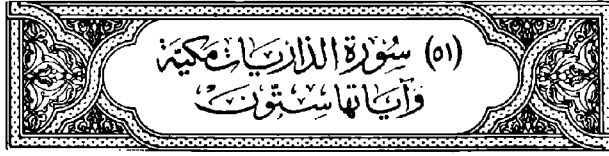 (٥١) سُورَة الذاريَات مكيّة
وَآيَاتها سِتّونَ